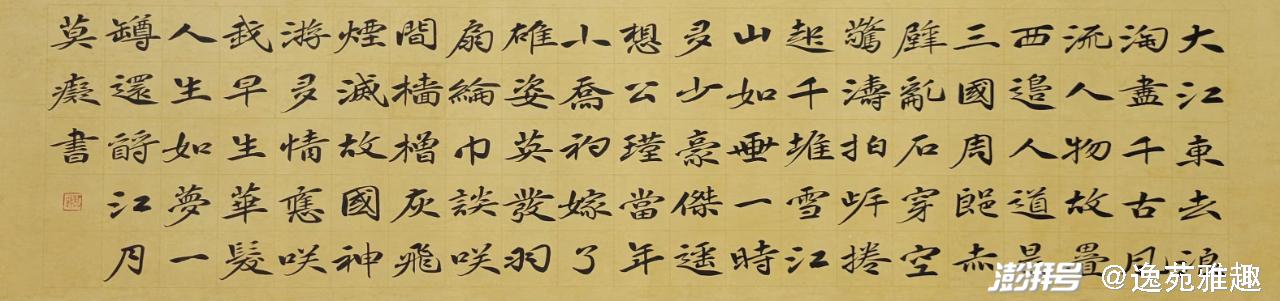 大江東去浪
淘盡千古風
流人物故壘
西邊人道是
三國周郎赤
壁亂石穿空
驚濤拍岸捲
起千堆雪江
山如畫一時
多少豪傑遙
想公瑾當年
小喬初嫁了
雄姿英發羽
扇綸巾談咲
間檣櫓灰飛
煙滅故國神
游多情應咲
我早生華髮
人生如夢一
罇還酹江月
莫癡書
澎湃号 @逸苑雅趣